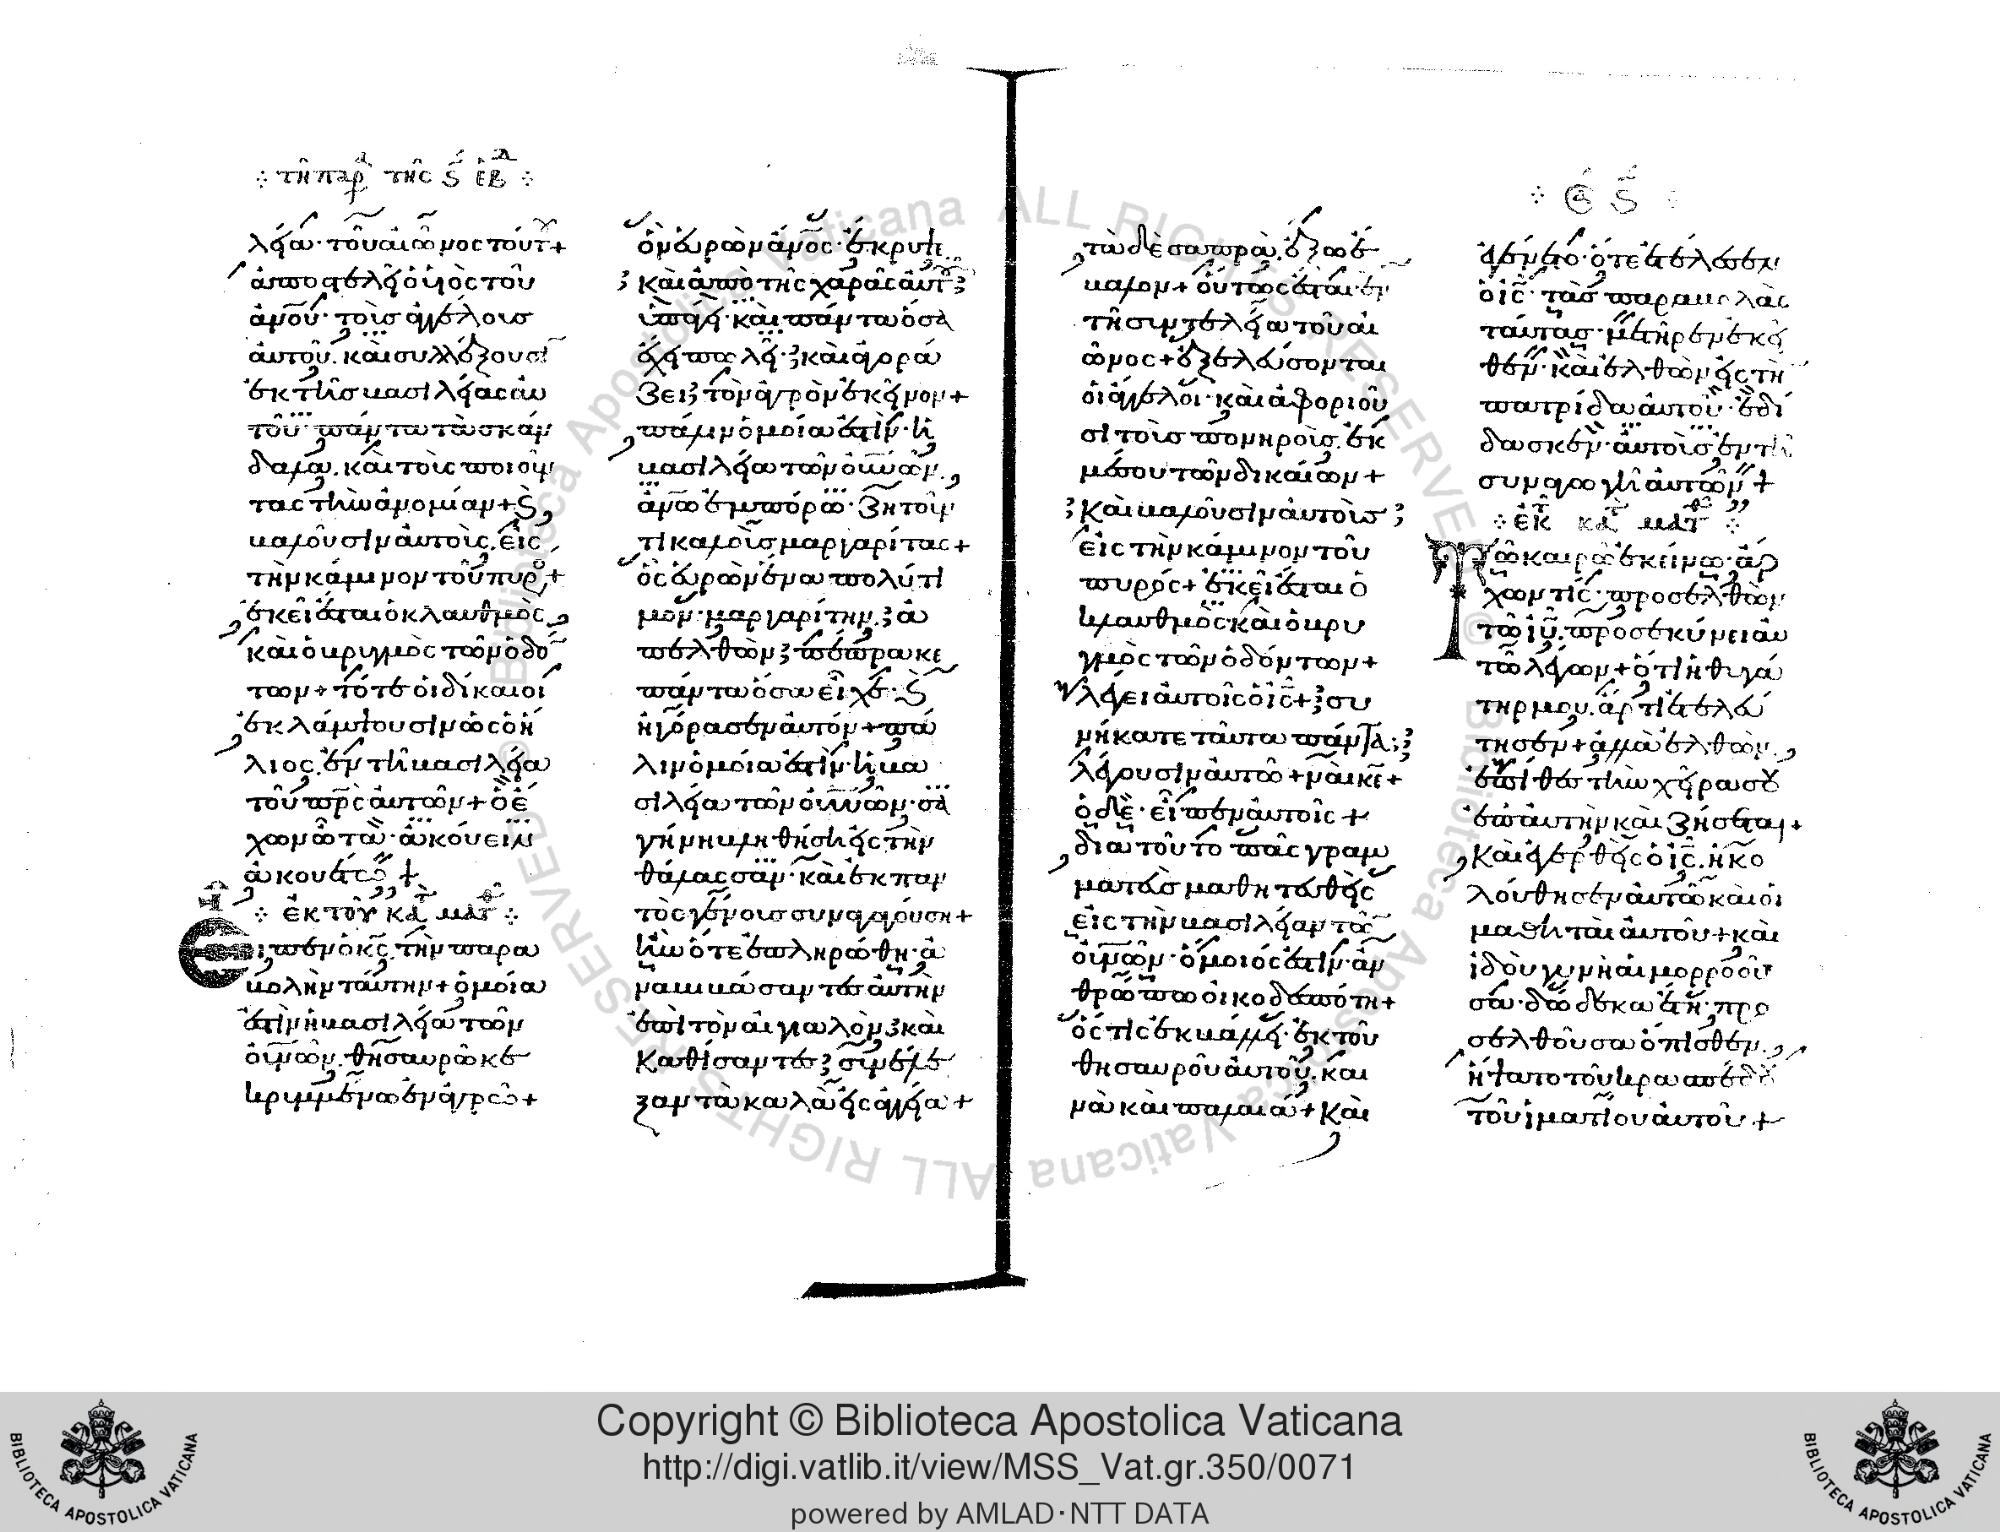 τῇ παρ τῆς ϛ ἑβδ
λεία· τοῦ αἰῶνος τούτου+
ἀποστελεῖ ὁ υἱὸς τοῦ
ἀνου· τοῖς ἀγγέλοις
αὐτοῦ. καὶ συλλέξουσιν
ἐκ τῆς βασιλείας αὐ
τοῦ· πάντα τὰ σκάν
δαλα. καὶ τοὺς ποιοῦν
τας τὴν ἀνομίαν+ καὶ
βαλοῦσιν αὐτοὺς. εἰς
τὴν κάμινον τοῦ πυρός+
ἐκεῖ ἔσται ὁ κλαυθμὸς,
καὶ ὁ βρυγμὸς τῶν ὀδόν
των+ τότε οἱ δίκαιοι
ἐκλάμψουσιν ὡς ὁ ἥ
λιος. ἐν τῇ βασιλεία
τοῦ πρς αὐτῶν+ ὁ ἔ
χων ὦτα· ἀκούειν
ἀκουέτω+
ἐκ τοῦ κατ ματ
Εἶπεν ὁ κς. τὴν παρα
βολὴν ταύτην+ ὁμοία
ἐστὶν ἡ βασιλεία τῶν
οὐνῶν. θησαυρῶ κε
κρυμμένω ἐν ἀγρῶ+
ὃν εὑρὼν ἀνος· ἔκρυψε
καὶ ἀπὸ τῆς χαρᾶς αὐτοῦ
ὑπάγει· καὶ πάντα ὅσα
ἔχει πωλεῖ· καὶ ἀγορά
ζει τὸν ἀγρὸν ἐκεῖνον+
πάλιν ὁμοία ἐστὶν· ἡ
βασιλεία τῶν οὐνῶν.
ἀνω ἐμπόρω· ζητοῦν
τι καλοὺς μαργαρίτας+
ὃς εὑρὼν ἕνα πολύτι
μον· μαργαρίτην. ἀ
πελθὼν πέπρακε
πάντα ὅσα εἶχε· καὶ
ἠγόρασεν αὐτόν+ πά
λιν ὁμοία ἐστὶν· ἡ βα
σιλεία τῶν οὐνῶν· σα
γήνη βληθήση εἰς τὴν
θάλασσαν· καὶ ἐκ παν
τὸς γένους συναγαγούση+
ἣν ὅτε ἐπληρώθη· ἀ
ναβιβάσαντες αὐτὴν
ἐπὶ τὸν αἰγιαλὸν καὶ
καθίσαντες συνέλε
ξαν τὰ καλὰ εἰς ἀγγεῖα+
τὰ δὲ σαπρὰ. ἔξω ἔ
βαλον+ οὕτως ἔσται· ἐν
τῇ συντελεία τοῦ αἰ
ῶνος+ ἐξελεύσονται
οἱ ἄγγελοι· καὶ ἀφοριοῦ
σι τοὺς πονηροὺς. ἐκ
μέσου τῶν δικαίων+
καὶ βαλοῦσιν αὐτοὺς
εἰς τὴν κάμινον τοῦ
πυρός+ ἐκεῖ ἔσται ὁ
κλαυθμὸς καὶ ὁ βρυ
γμὸς τῶν ὀδόντων+
λέγει αὐτοῖς ὁ ις+ συ
νήκατε ταῦτα πάντα;
λέγουσιν αὐτῶ+ ναὶ κε+
ὁ δὲ· εἶπεν αὐτοῖς+
διὰ τοῦτο πᾶς γραμ
ματεὺς μαθητευθεὶς
εἰς τὴν βασιλείαν τῶν
οὐνῶν· ὅμοιός ἐστιν· ἀν
θρώπω οἰκοδεσπότη+
ὅς τις ἐκβάλλει· ἐκ τοῦ
θησαυροῦ αὐτοῦ. και
νὰ καὶ παλαιά+ καὶ
ϛ
ἐγένετο· ὅτε ἐτέλεσεν
ὁ ις· τὰς παραβολὰς
ταύτας· μετῆρεν ἐκεῖ
θεν· καὶ ἐλθὼν εἰς τὴν
πατρίδα αὐτοῦ· ἐδί
δασκεν· αὐτοὺς ἐν τῇ
συναγωγῇ αὐτῶν+
ἐκ κατ ματ
Τῶ καιρῶ ἐκείνω· ἄρ
χων τίς· προσελθὼν
τῶ ιυ. προσεκύνει αὐ
τῶ λέγων+ ὅτι ἡ θυγά
τηρ μου. ἄρτι ἐτελεύ
τησεν+ ἀλλὰ ἐλθὼν.
ἐπίθες τὴν χεῖρα σου
ἐπ αὐτὴν καὶ ζήσεται+
καὶ ἐγερθεὶς ὁ ις. ἠκο
λούθησεν αὐτῶ καὶ οἱ
μαθηταὶ αὐτοῦ+ καὶ
ἰδοὺ γυνὴ αἱμορροοῦ
σα· δώδεκα ἔτη· προ
σελθοῦσα ὄπισθεν.
ἥψατο τοῦ κρασπέδου
τοῦ ἱματίου αὐτοῦ+
Copyright © Biblioteca Apostolica Vaticana
http://digi.vatlib.it/view/MSS_Vat.gr.350/0071
powered by AMLAD·NTT DATA
BIBLIOTECA APOSTOLICA VATICANA
BIBLIOTECA APOSTOLICA VATICANA
© Biblioteca Apostolica Vaticana ALL RIGHTS RESERVED
© Biblioteca Apostolica Vaticana ALL RIGHTS RESERVED